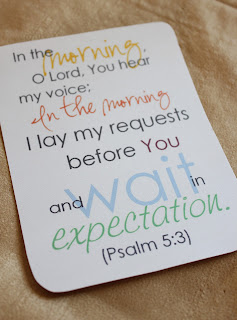 In the morning,
O Lord, You hear
my voice;
In the morning
I lay my requests
before You
and wait in
expectation.
(Psalm 5:3)